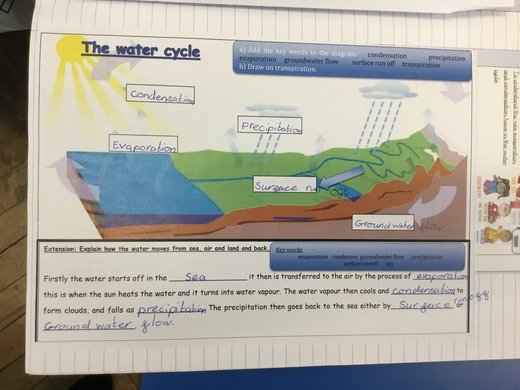 The water cycle
a) Add the key words to the diagram. condensation precipitation
evaporation groundwater flow surface run off transpiration
b) Draw on transpiration.
Condensation
Precipitation
Evaporation
Surface run
off
Ground water flow
Extension: Explain how the water moves from sea, air and land and back.
Key words
evaporation condenses groundwater flow precipitation
surface runoff sea
Firstly the water starts off in the sea it then is transferred to the air by the process of evaporation
this is when the sun heats the water and it turns into water vapour. The water vapour then cools and condensation to
form clouds, and falls as precipitation The precipitation then goes back to the sea either by Surface run off or
Ground water flow.
to understand the role evaporation
and condensation have in the water
cycle